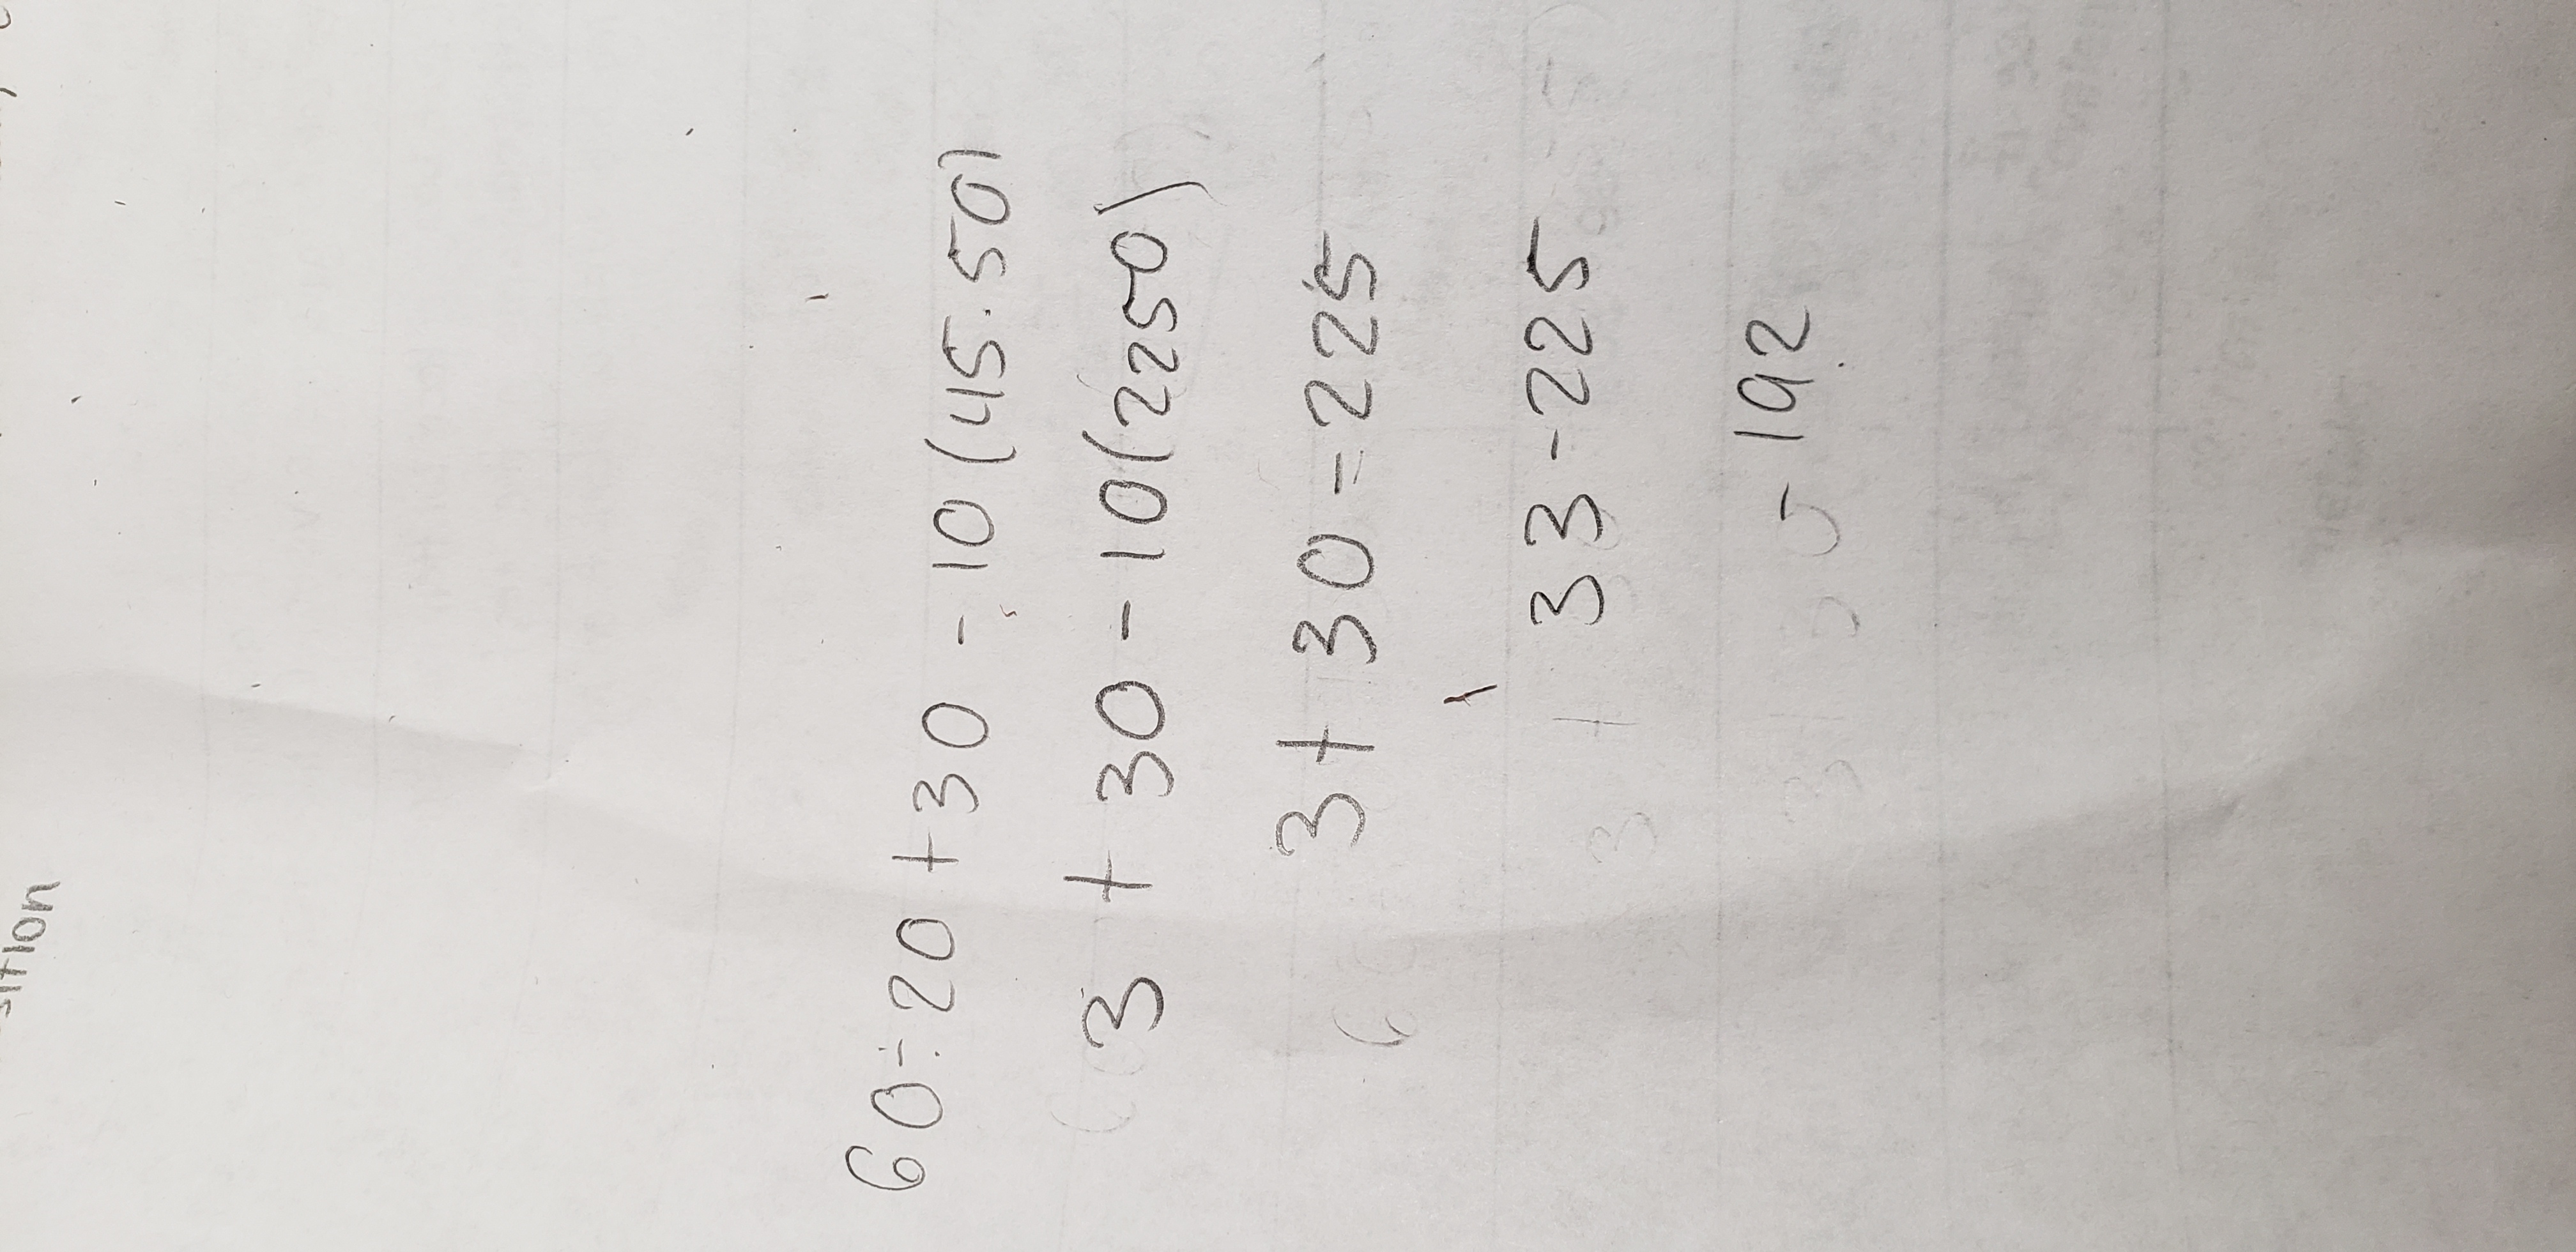 60÷20+30-10(45·50)
3+30-10(2250)
3+30=225
33-225
-192
sition